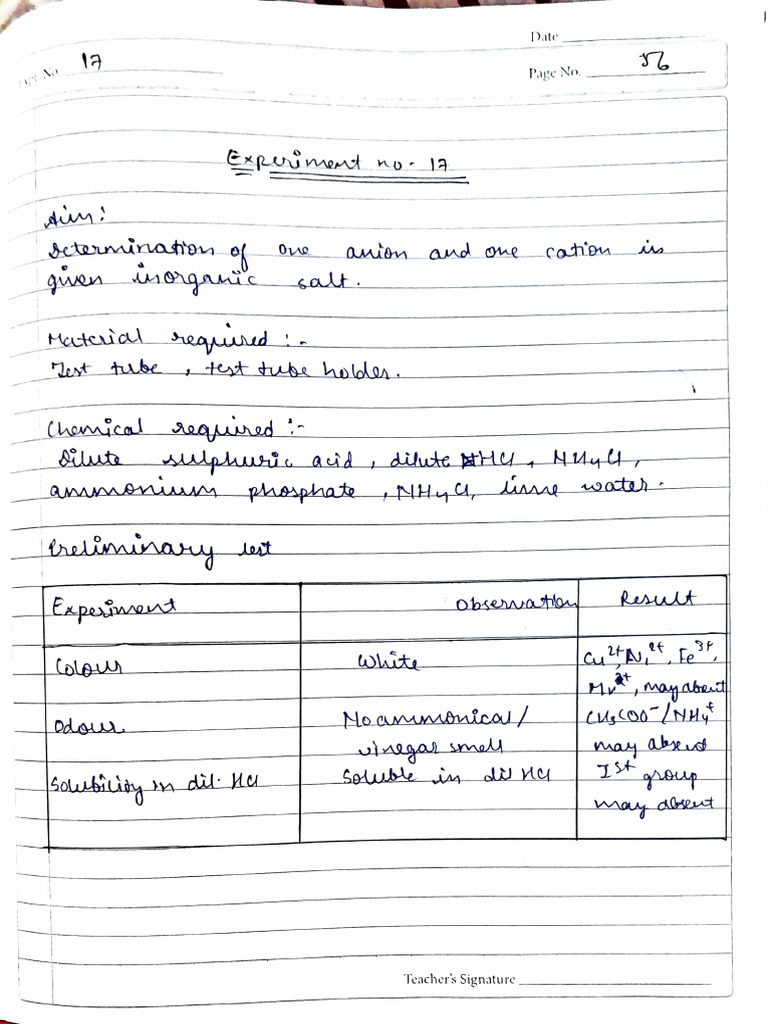 Date
Expt. No. 17
Page No. 56
Experiment no - 17
Aim:
Determination of one anion and one cation in
given inorganic salt.
Material required :-
Test tube , test tube holder.
Chemical required :-
Dilute sulphuric acid , dilute HCl , NH4Cl ,
ammonium phosphate , NH4Cl, lime water.
Preliminary test
Experiment Observation Result
Colour White Cu2+, Ni2+, Fe3+,
Mn2+, may absent
Odour No ammonical / CH3COO- / NH4+
vinegar smell may absent
Solubility in dil. HCl Soluble in dil HCl Ist group
may absent
Teacher's Signature